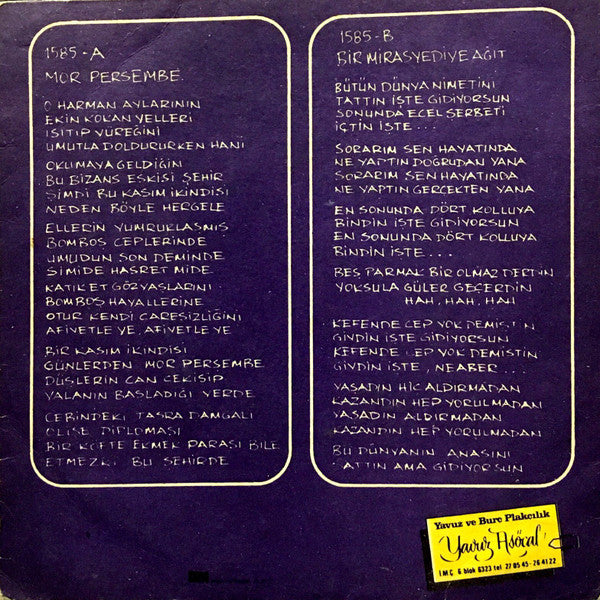 1585-A
MOR PERSEMBE.
O HARMAN AYLARININ
EKİN KOKAN YELLERİ
ISITIP YÜREĞİNİ
UMUTLA DOLDURURKEN HANİ
OKUMAYA GELDİĞİN
BU BİZANS ESKİSİ ŞEHİR
ŞİMDİ BU KASIM İKİNDİSİ
NEDEN BÖYLE HERGELE
ELLERİN YUMRUKLAŞMIŞ
BOMBOŞ CEPLERİNDE
UMUDUN SON DEMİNDE
SİMİDE HASRET MİDE
KATIKET GÖZYAŞLARINI
BOMBOŞ HAYALLERİNE
OTUR KENDİ CARESİZLİĞİNİ
AFİYETLE YE, AFİYETLE YE
BİR KASIM İKİNDİSİ
GÜNLERDEN MOR PERSEMBE
DÜŞLERİN CAN CEKİSİP
YALANIN BAŞLADIĞI YERDE
CEBİNDEKİ TASRA DAMGALI
OLİSE DİPLOMASI
BİR KÖFTE EKMEK PARASI BİLE
ETMEZKİ BU SEHİRDE
1585-B
BİR MİRASYEDİYE AĞIT
BÜTÜN DÜNYA NİMETİNİ
TATTIN İŞTE GİDİYORSUN
SONUNDA ECEL SERBETİ
İÇTİN İŞTE...
SORARIM SEN HAYATINDA
NE YAPTIN DOĞRUDAN YANA
SORARIM SEN HAYATINDA
NE YAPTIN GERÇEKTEN YANA
EN SONUNDA DÖRT KOLLUYA
BİNDİN İŞTE GİDİYORSUN
EN SONUNDA DÖRT KOLLUYA
BİNDİN İŞTE...
BEŞ PARMAK BİR OLMAZ DERDİN
YOKSULA GÜLER GEÇERDİN
HAH, HAH, HAH
KEFENDE CEP YOK DEMİSTİN
GİYDİN İŞTE GİDİYORSUN
KEFENDE CEP YOK DEMİSTİN
GİYDİN İŞTE, NEABER...
YAŞADIN HİC ALDIRMADAN
KAZANDIN HEP YORULMADAN
YASADIN ALDIRMADAN
KAZANDIN HEP YORULMADAN
BU DÜNYANIN ANASINI
SATTIN AMA GİDİYORSUN
Yavuz ve Burç Plakçılık
Yavuz Asöcal
İMÇ 6 blok 6323 tel 27 05 45-26 41 22